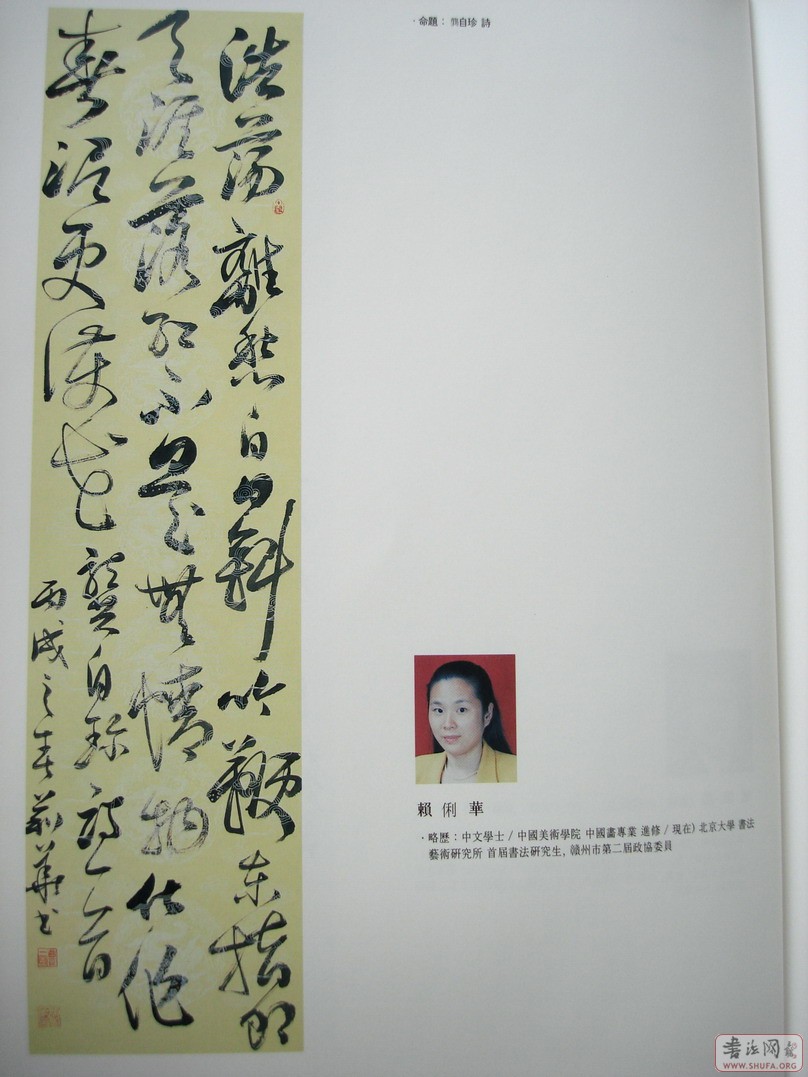 浩蕩離愁白日斜吟鞭东指即
天涯落红不是無情物化作
春泥更護花龔自珍詩一首
丙戌之春莉華书
·命題：龔自珍 詩
賴俐華
·略歷：中文學士 / 中國美術學院 中國畵專業 進修 / 現在) 北京大學 書法
藝術硏究所 首屆書法硏究生, 贛州市第二屆政協委員
書法网
WWW.SHUFA.ORG